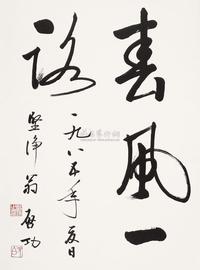 春風一
路
一九八五年夏日
堅净翁啟功